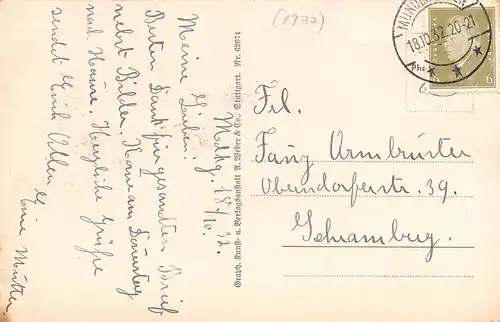 (R972)
MÜNDE
18.10.32.20-21
6
Mchg. 18/10. 32.
Meine Lieben!
Besten Dank für gesandten Brief
nebst Bilder. Komme am Dienstag
nach Hause. Herzliche Grüße
sendet Euch Allen
Eure Mutter.
Graph. Kunst- u. Verlagsanstalt A. Weber & Co., Stuttgart. Nr. 62071
Frl.
Fany Armbruster
Oberndorferstr. 39.
Schramberg.